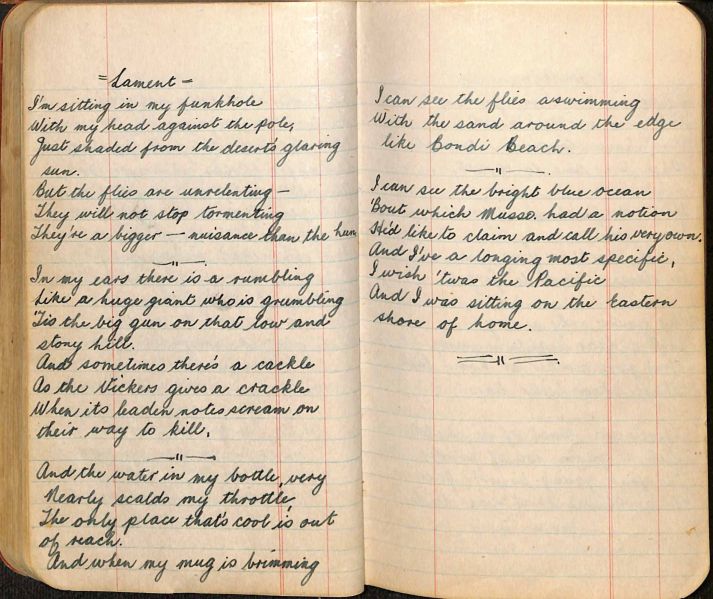 = Lament =
I'm sitting in my funkhole
With my head against the pole,
Just shaded from the desert's glaring
sun.
But the flies are unrelenting —
They will not stop tormenting
They're a bigger — nuisance than the hun
In my ears there is a rumbling
Like a huge giant who is grumbling
'Tis the big gun on that low and
stony hill.
And sometimes there's a cackle
As the Vickers gives a crackle
When its leaden notes scream on
their way to kill.
And the water in my bottle, very
Nearly scalds my throttle,
The only place that's cool is out
of reach.
And when my mug is brimming
I can see the flies aswimming
With the sand around the edge
like Bondi Beach.
I can see the bright blue ocean
'Bout which Musso. had a notion
He'd like to claim and call his very own.
And I've a longing most specific,
I wish 'twas the Pacific
And I was sitting on the Eastern
shore of home.